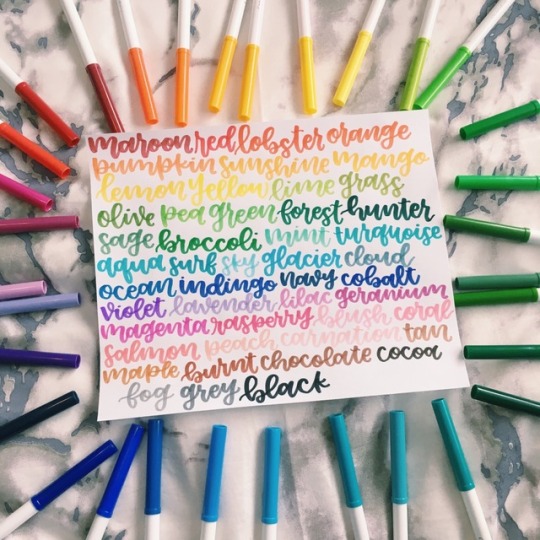 maroon red lobster orange
pumpkin sunshine mango
lemon yellow lime grass
olive pea green forest hunter
sage broccoli mint turquoise
aqua surf sky glacier cloud
ocean indingo navy cobalt
violet lavender lilac geranium
magenta raspberry blush coral
salmon peach carnation tan
maple burnt chocolate cocoa
fog grey black